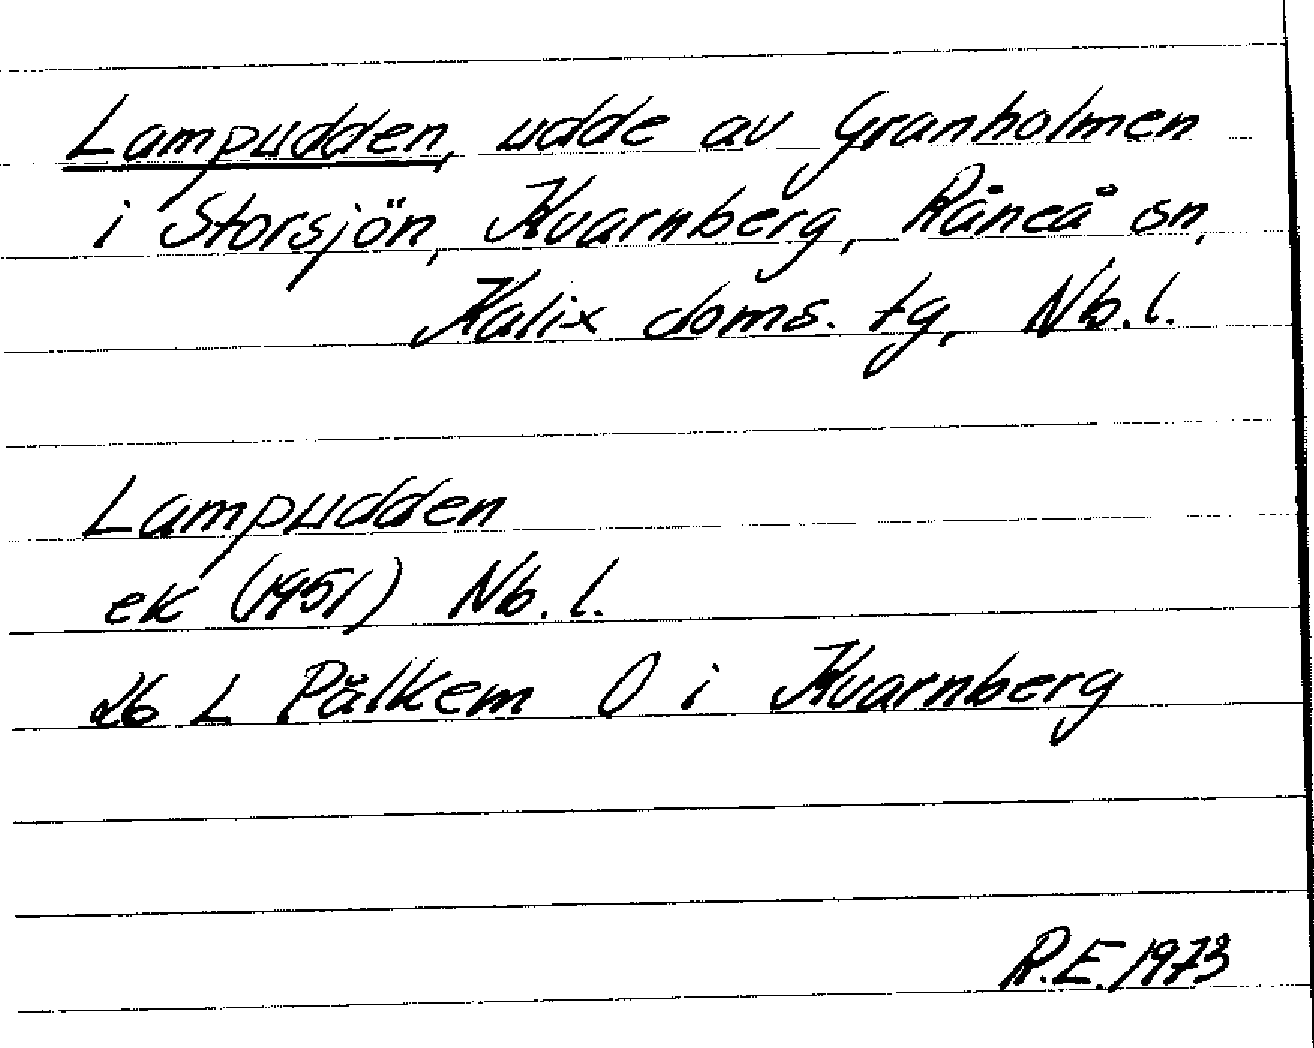 Lampudden, udde av Granholmen
i Storsjön, Kvarnberg, Råneå sn,
Kalix doms. tg, Nb.l.
Lampudden
ek (1951) Nb. l.
26 L Pålkem O i Kvarnberg
R.E. 1973